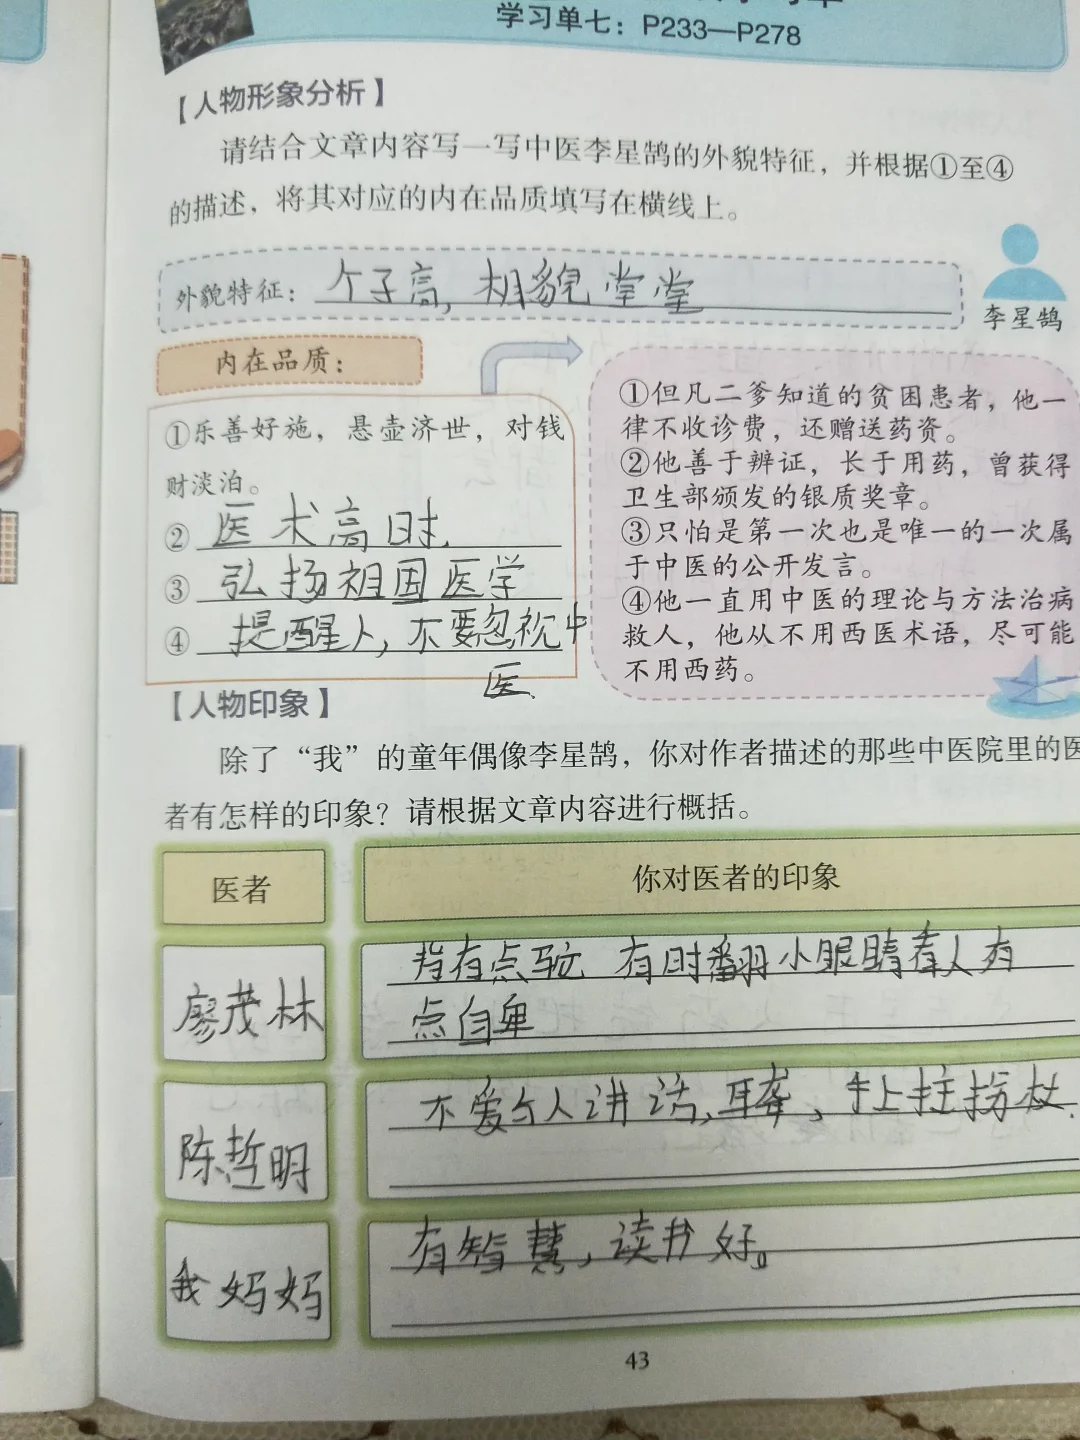 学习单七：P233—P278
【人物形象分析】
请结合文章内容写一写中医李星鹄的外貌特征，并根据①至④
的描述，将其对应的内在品质填写在横线上。
外貌特征：个子高，相貌堂堂
李星鹄
内在品质：
①乐善好施，悬壶济世，对钱
财淡泊。
②医术高时
③弘扬祖国医学
④提醒人，不要忽视中
医
①但凡二爹知道的贫困患者，他一
律不收诊费，还赠送药资。
②他善于辨证，长于用药，曾获得
卫生部颁发的银质奖章。
③只怕是第一次也是唯一的一次属
于中医的公开发言。
④他一直用中医的理论与方法治病
救人，他从不用西医术语，尽可能
不用西药。
【人物印象】
除了“我”的童年偶像李星鹄，你对作者描述的那些中医院里的医
者有怎样的印象？请根据文章内容进行概括。
医者
你对医者的印象
廖茂林
背有点驼 有时翻小眼睛看人有
点自卑
陈哲明
不爱与人讲话，耳聋，手上拄拐杖.
我妈妈
有智慧，读书好。
43